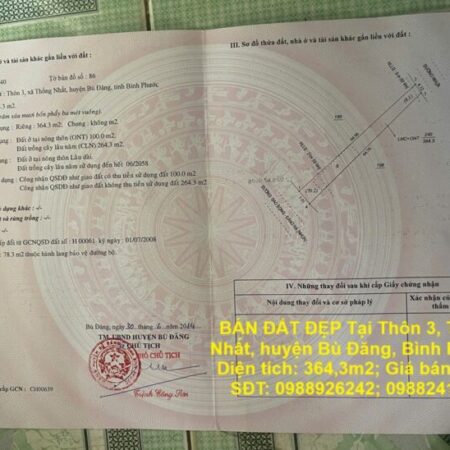 ở và tài sản khác gắn liền với đất :
40 Tờ bản đồ số : 86
: Thôn 3, xã Thống Nhất, huyện Bù Đăng, tỉnh Bình Phước
.3 m2.
trăm sáu mươi bốn phẩy ba mét vuông).
ụng : Riêng : 364.3 m2, Chung : không m2.
ụng : Đất ở tại nông thôn (ONT) 100.0 m2,
Đất trồng cây lâu năm (CLN) 264.3 m2.
ụng : Đất ở tại nông thôn Lâu dài.
Đất trồng cây lâu năm sử dụng đến hết 06/2058
ụng : Công nhận QSDĐ như giao đất có thu tiền sử dụng đất 100.0 m2
Công nhận QSDĐ như giao đất không thu tiền sử dụng đất 264.3 m2
ựng khác : -/-
t là rừng trồng : -/-
m : -/-
cấp đổi từ GCNQSD đất số : H 00061 ký ngày : 01/07/2008
78.3 m2 thuộc hành lang bảo vệ đường bộ.
Bù Đăng, ngày 30 tháng 6 năm 2014
TM. UBND HUYỆN BÙ ĐĂNG
CHỦ TỊCH
PHÓ CHỦ TỊCH
Trịnh Công Sơn
cấp GCN : CH00639
III. Sơ đồ thửa đất, nhà ở và tài sản khác gắn liền với đất :
ĐƯỜNG NHỰA
LNC+ONT
240
364.3
IV. Những thay đổi sau khi cấp Giấy chứng nhận
Nội dung thay đổi và cơ sở pháp lý
Xác nhận củ
thẩm
BÁN ĐẤT ĐẸP Tại Thôn 3, T
Nhất, huyện Bù Đăng, Bình
Diện tích: 364,3m2; Giá bán
SĐT: 0988926242; 098824